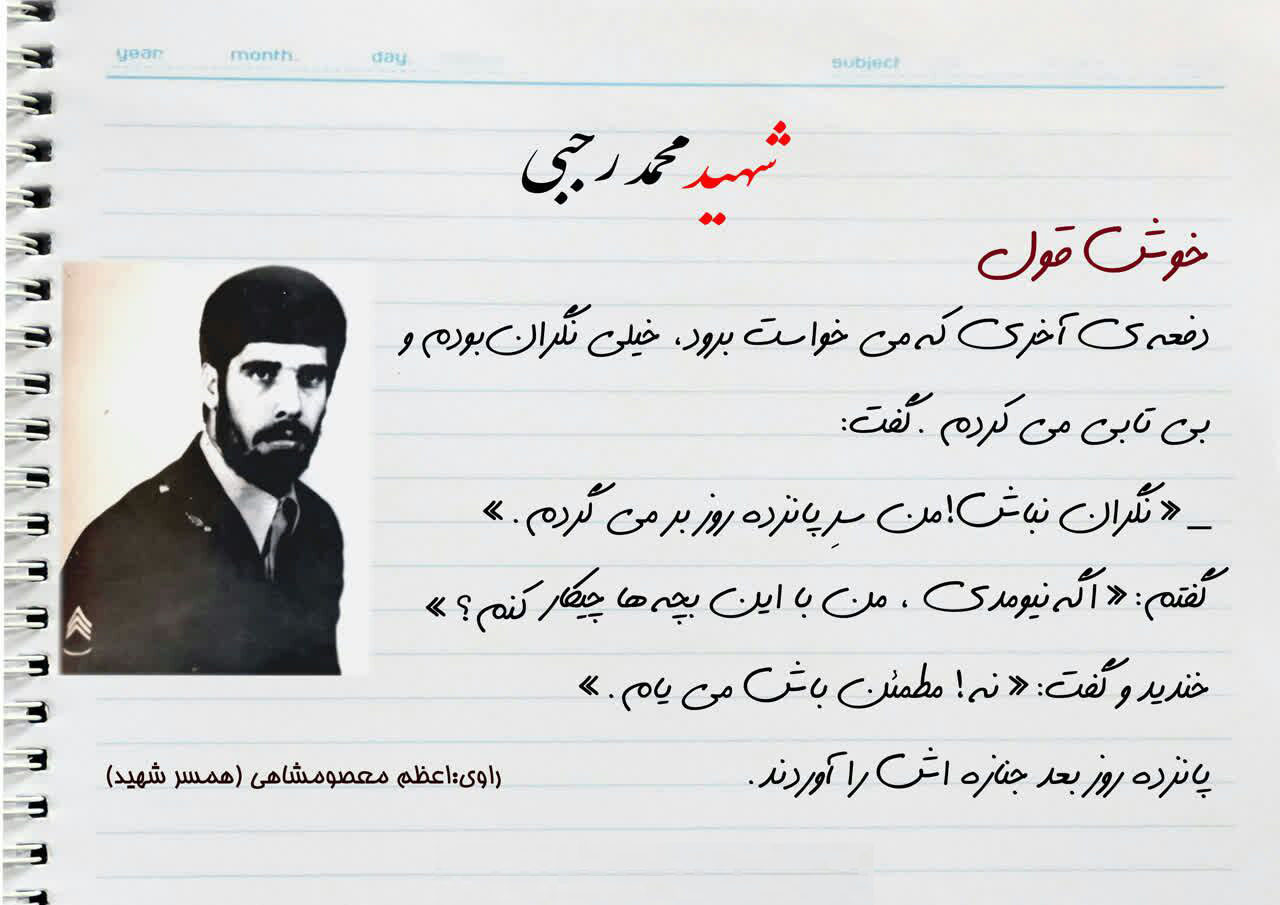 year month. day. subject
شهید محمد رجبی
خوش قول
دفعه ی آخری که می خواست برود، خیلی نگران بودم و
بی تابی می کردم . گفت:
_ « نگران نباش! من سرِ پانزده روز بر می گردم . »
گفتم: « اگه نیومدی ، من با این بچه ها چیکار کنم ؟ »
خندید و گفت: « نه ! مطمئن باش می یام . »
پانزده روز بعد جنازه اش را آوردند .
راوی:اعظم معصومشاهی (همسر شهید)